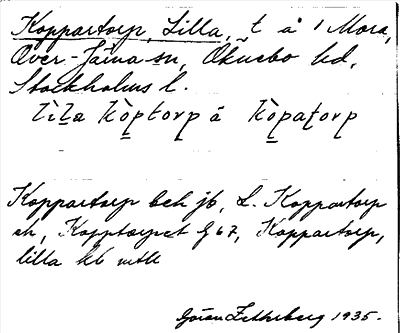 Koppartorp, Lilla, t å 1 Mora,
Över-Järna sn, Öknebo hd,
Stockholms l.
lìla kòptorp å kòpatorp
Koppartorp beh jb, L. Koppartorp
sh, Kopptorpet G 67, Koppartorp,
lilla kb mtl
Göran Zetherberg 1935.